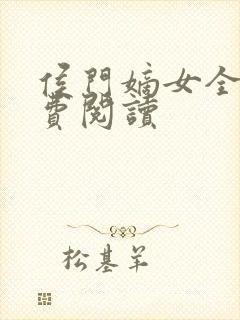 侯門嫡女全
費閱讀
松基羊